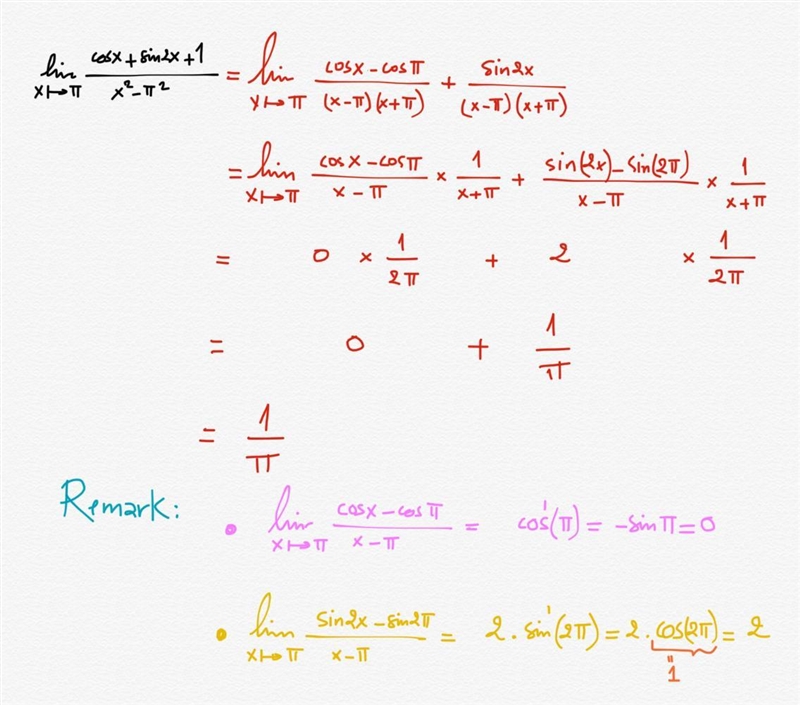 lim x↦π (cosx+sin2x+1)/(x²-π²) = lim x↦π (cosx-cosπ)/((x-π)(x+π)) + sin2x/((x-π)(x+π))
= lim x↦π (cosx-cosπ)/(x-π) × 1/(x+π) + (sin(2x)-sin(2π))/(x-π) × 1/(x+π)
= 0 × 1/2π + 2 × 1/2π
= 0 + 1/π
= 1/π
Remark:
• lim x↦π (cosx-cosπ)/(x-π) = cos'(π) = -sinπ=0
• lim x↦π (sin2x-sin2π)/(x-π) = 2.sin'(2π) = 2.cos(2π) = 2
"
1